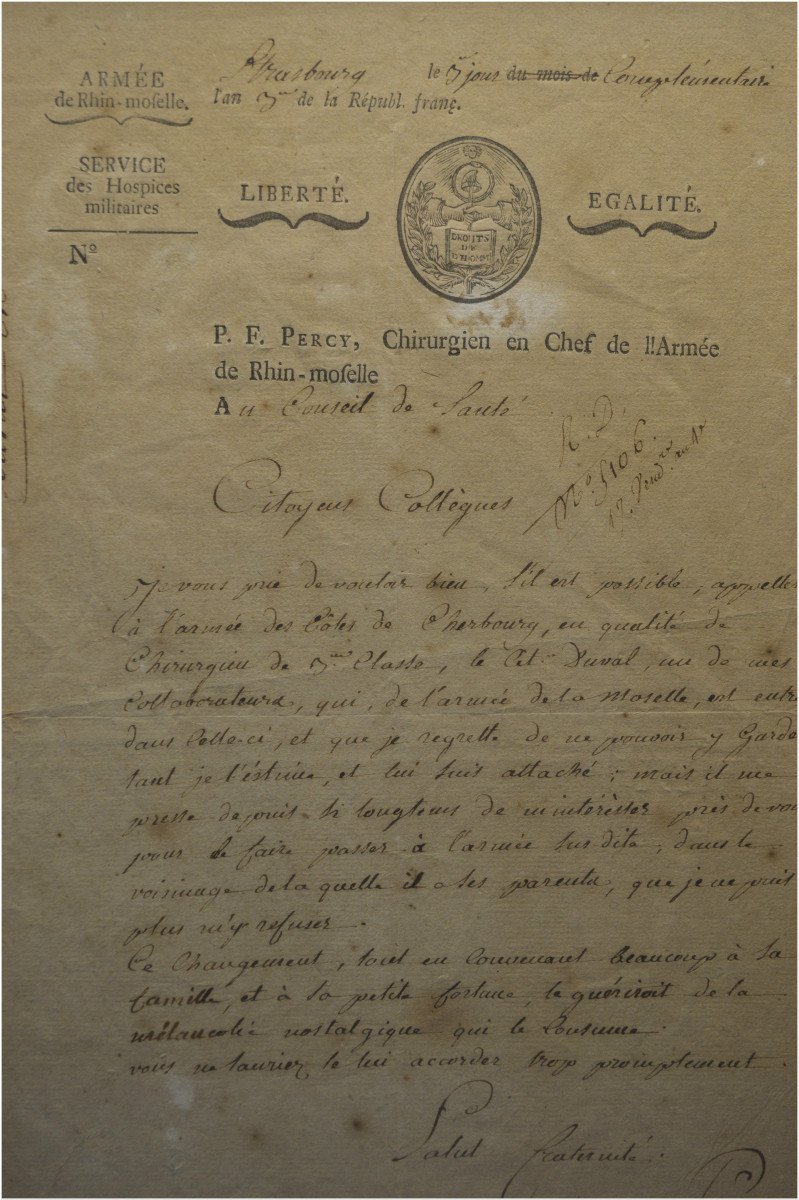 ARMÉE
de Rhin-moselle.
SERVICE
des Hospices
militaires
Nº
Strasbourg le 3 jour du mois de Complémentaire
l'an 3me de la Républ. franç.
LIBERTÉ.
DROITS
DE
L'HOMME
EGALITÉ.
P. F. PERCY, Chirurgien en Chef de l'Armée
de Rhin-moselle
Au Conseil de Santé
Nº. 5106.
17. Vend.re an 4e
Citoyens Collègues
Je vous prie de vouloir bien, s'il est possible, appeller
à l'armée des Côtes de Cherbourg, en qualité de
Chirurgien de 3me Classe, le Cit. Duval, un de mes
Collaborateurs, qui, de l'armée de la Moselle, est entré
dans Celle-ci, et que je regrette de ne pouvoir y Garder
tant je l'éstime, et lui suis attaché; mais il me
presse depuis si longtems de m'intérésser près de vous
pour le faire passer à l'armée sus-dite, dans le
voisinage de la quelle il a ses parents, que je ne puis
plus m'y refuser.
Ce Changement, tout en Convenant beaucoup à sa
famille, et à sa petite fortune, le guériroit de la
mélancolie nostalgique qui le Consume.
vous ne sauriez le lui accorder trop promptement.
Salut fraternité.